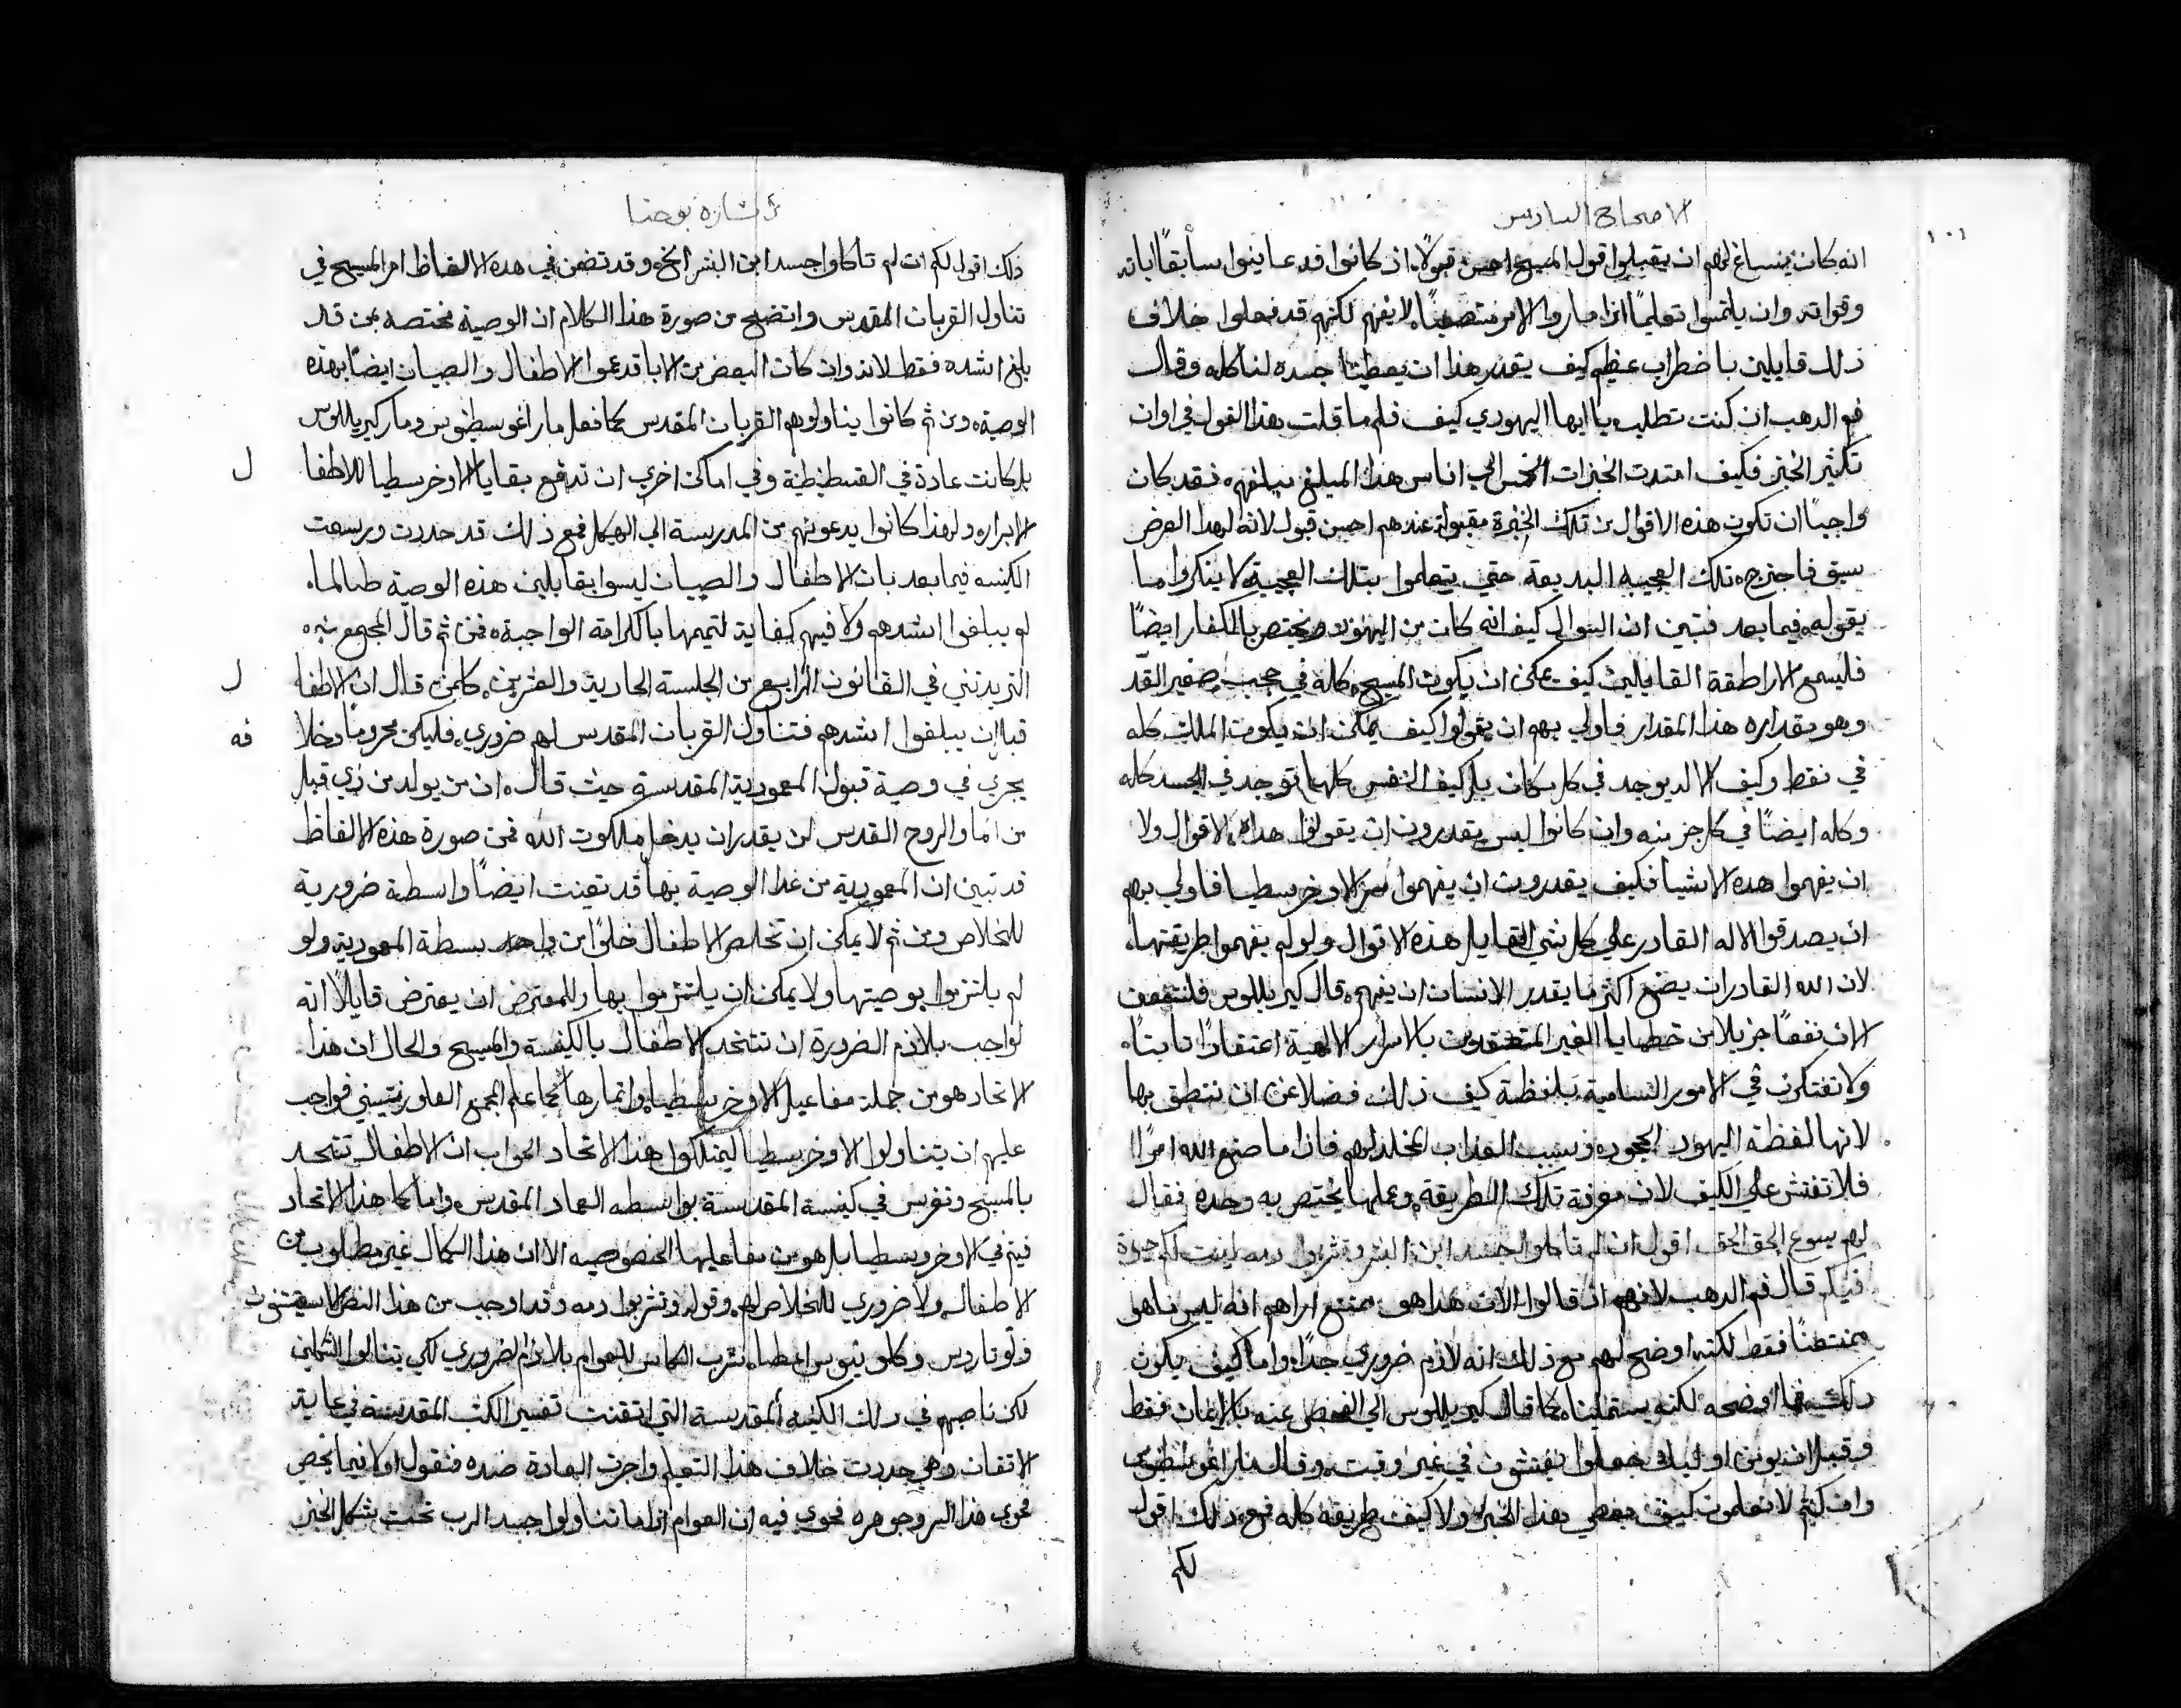 الاصحاح السادس
١٠١
انه كان ينساغ لهم ان يقبلوا قول المسيح احسن قبولًا اذ كانوا قد عاينوا سابقًا اياته
وقواته وان يلتمسوا تعليمًا اذا ما راوا الامر متصعبًا لا يفهم لكنهم قد فعلوا خلاف
ذلك قايلين باضطراب عظيم كيف يقدر هذا ان يعطينا جسده لناكله وقال
فم الدهب ان كنت تطلب يا ايها اليهودي كيف فلم ما قلت هذا القول في اوان
تكثير الخبز فكيف امتدت الخبزات الخمس الي اناس هذا المبلغ مبلغهم فقد كان
واجبًا ان تكون هذه الاقوال من تلك الخبرة مقبولة عندهم احسن قبول لانه لهذا الغرض
سبق فاجترح تلك العجيبة البديعة حتي يتعلموا بتلك العجيبة لا ينكروا ما
يقوله فيما بعد فتبين ان السوال كيف انه كان من اليهود ومختص بالكفار ايضًا
فليسمع الاراطقة القايلين كيف يمكن ان يكون المسيح كله في حجب صغير القد
وهو بقداره هذا المقدار فاولي بهم ان يقولوا كيف يمكن ان يكون الملك كله
في نقط وكيف الاله يوجد في كل مكان بل كيف النفس كلها توجد في الجسد كله
وكله ايضًا في كل جز منه وان كانوا ليس يقدرون ان يقولوا هذه الاقوال ولا
ان يفهموا هذه الاشيا فكيف يقدرون ان يفهموا سر الاوخرسطيا فاولي بهم
ان يصدقوا الاله القادر علي كل شي القايل هذه الاقوال ولو لم يفهموا طريقتها
لان الله القادر ان يصنع اكثر ما يقدر الانسان ان يفهم قال كيريللوس فلننتفعن
الان نفعًا جزيلًا من خطايا الغير المعتقدين بالاسرار الالهية اعتقادًا ثابتًا
ولا نفتكرن في الامور السامية بلفظة كيف ذلك فضلا عن ان ننطق بها
لانها لفظة اليهود الجحود وسبب العذاب المخلد لهم فاذا ما صنع الله امرًا
فلا تفتش علي الكيف لان معرفة تلك الطريقة وعملها يختص به وحده فقال
لهم يسوع الحق الحق اقول ان لم تاكلوا جسد ابن البشر وتشربوا دمه ليست لكم حياة
فيكم قال فم الدهب لانهم اذ قالوا الان هذا هو ممتنع اراهم انه ليس ما هو
ممتنعًا فقط لكنه اوضح لهم مع ذلك انه لازم ضروري جدًا واما كيف يكون
ذلك فما اوضحه لكنه يستميلنا كما قال كيريللوس الي الفحص عنه بالايمان فقط
وقبل ان يومن اوليك جعلوا يفتشون في غير وقت وقال مار اغوسطينوس
وان كنتم لا تعلمون كيف يعطي هذا الخبز ولا كيف طريقة كله فمع ذلك اقول
لكم
بشارة يوحنا
ذلك اقول لكم ان لم تاكلوا جسد ابن البشر الخ وقد تضمن في هده الالفاظ امر المسيح في
تناول القربان المقدس واتضح من صورة هذا الكلام ان الوصية مختصة بمن قد
بلغ اشده فقط لانه وان كان البعض من الابا قد عموا الاطفال والصبيان ايضًا بهذه
الوصية ومن ثم كانوا يناولوهم القربان المقدس كما فعل مار اغوسطينوس ومار كيريللوس
بل كانت عادة في القسطنطنية وفي اماكن اخري ان تدفع بقايا الاوخرسطيا للاطفا
ل
الابراره ولهذا كانوا يدعونهم من المدرسة الي الهيكل فمع ذلك قد حددت ورسمت
الكنيسه فيما بعد بان الاطفال والصبيان ليسوا بقابلين هذه الوصية طالما
لم يبلغوا اشدهم ولا فيهم كفاية لتميمها بالكرامة الواجبة فمن ثم قال المجمع
التريدنتي في القانون الرابع من الجلسة الحادية والعشرين كلمن قال ان الاطفا
ل
قبل ان يبلغوا اشدهم فتناول القربان المقدس لهم ضروري فليكن محرومًا وخلا
فه
يجري في وصية قبول المعمودية المقدسة حيث قال ان من يولد من ذي قبل
من الما والروح القدس لن يقدر ان يدخل ملكوت الله فمن صورة هذه الالفاظ
قد تبين ان المعمودية من عدا الوصية بها قد تعينت ايضًا واسطة ضرورية
للخلاص ومن ثم لا يمكن ان تخلص الاطفال خلوًا من واسطة المعمودية ولو
لم يلتزموا بوصيتها ولا يمكن ان يلتزموا بها وللمعترض ان يعترض قايلًا انه
لواجب بلازم الضرورة ان تتحد الاطفال بالكنيسة والمسيح والحال ان هذا
الاتحاد هو من جملة مفاعيل الاوخرسطيا واثمارها كما علم المجمع الفلورنتيني فواجب
عليهم ان يتناولوا الاوخرسطيا ليمتلكوا هذا الاتحاد الجواب ان الاطفال تتحد
بالمسيح وتغرس في كنيسة المقدسة بواسطه العماد المقدس واما كمال هذا الاتحاد
فيتم في الاوخرسطيا بل هو من مفاعيلها الخصوصيه الا ان هذا الكمال غير مطلوب من
الاطفال ولا ضروري للخلاص لهم وقوله وتشربوا دمه وقد اوجب من هذا النص
ولوتاروس وكلوينوس اعطا شرب الكاس للعوام بلازم الضروري لكي يتنالوا الشكلين
لكن ناصبهم في ذلك الكنيسة المقدسة التي اتقنت تفسير الكتب المقدسة في غاية
الاتقان وهي حددت خلاف هذا التعليم واجرت العادة ضده فنقول اولًا فيما يخص
فحوي هذا السر وجوهره فحوي فيه ان العوام اذا ما تناولوا جسد الرب تحت شكل الخبز